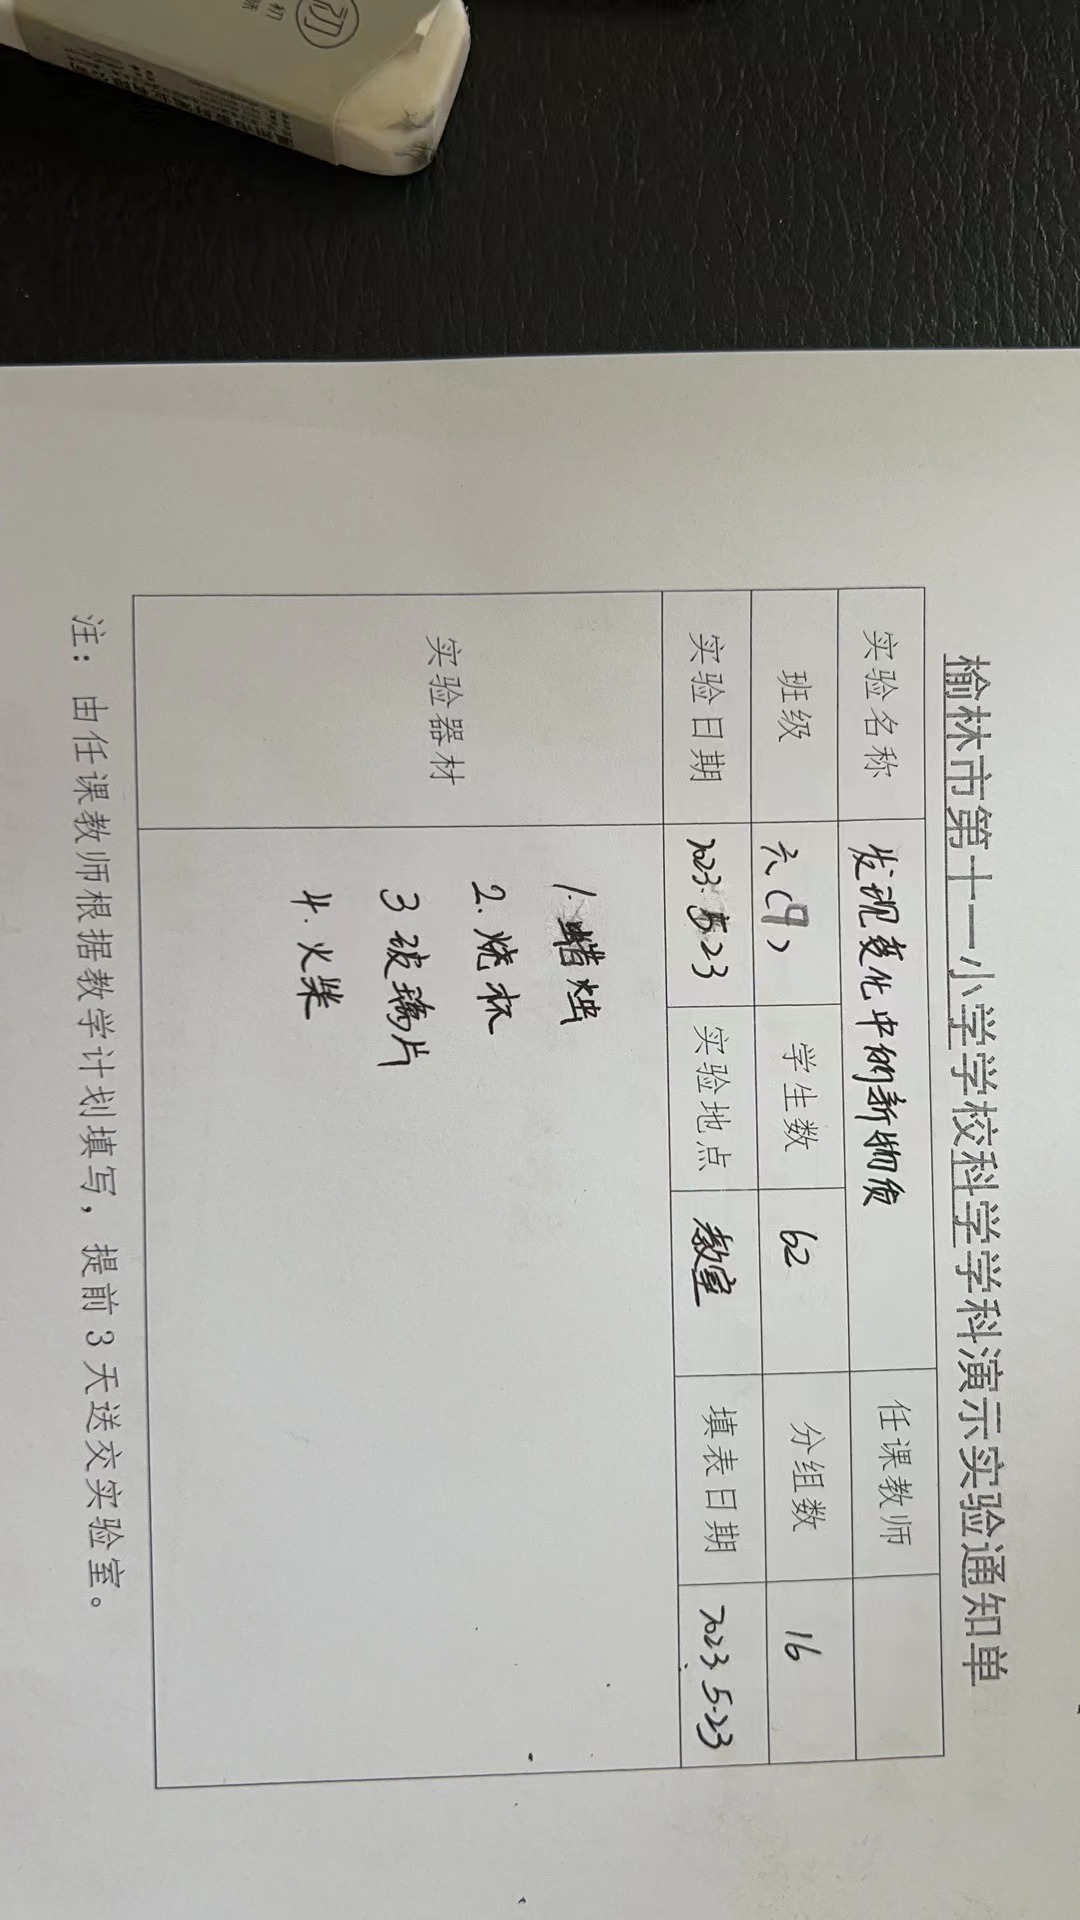 榆林市第十一小学学校科学学科演示实验通知单
实验名称 发现变化中的新物质 任课教师
班级 六(9) 学生数 62 分组数 16
实验日期 2023.5.23 实验地点 教室 填表日期 2023 5.23
实验器材
1.蜡烛
2.烧杯
3 玻璃片
4.火柴
注：由任课教师根据教学计划填写，提前3天送交实验室。
初